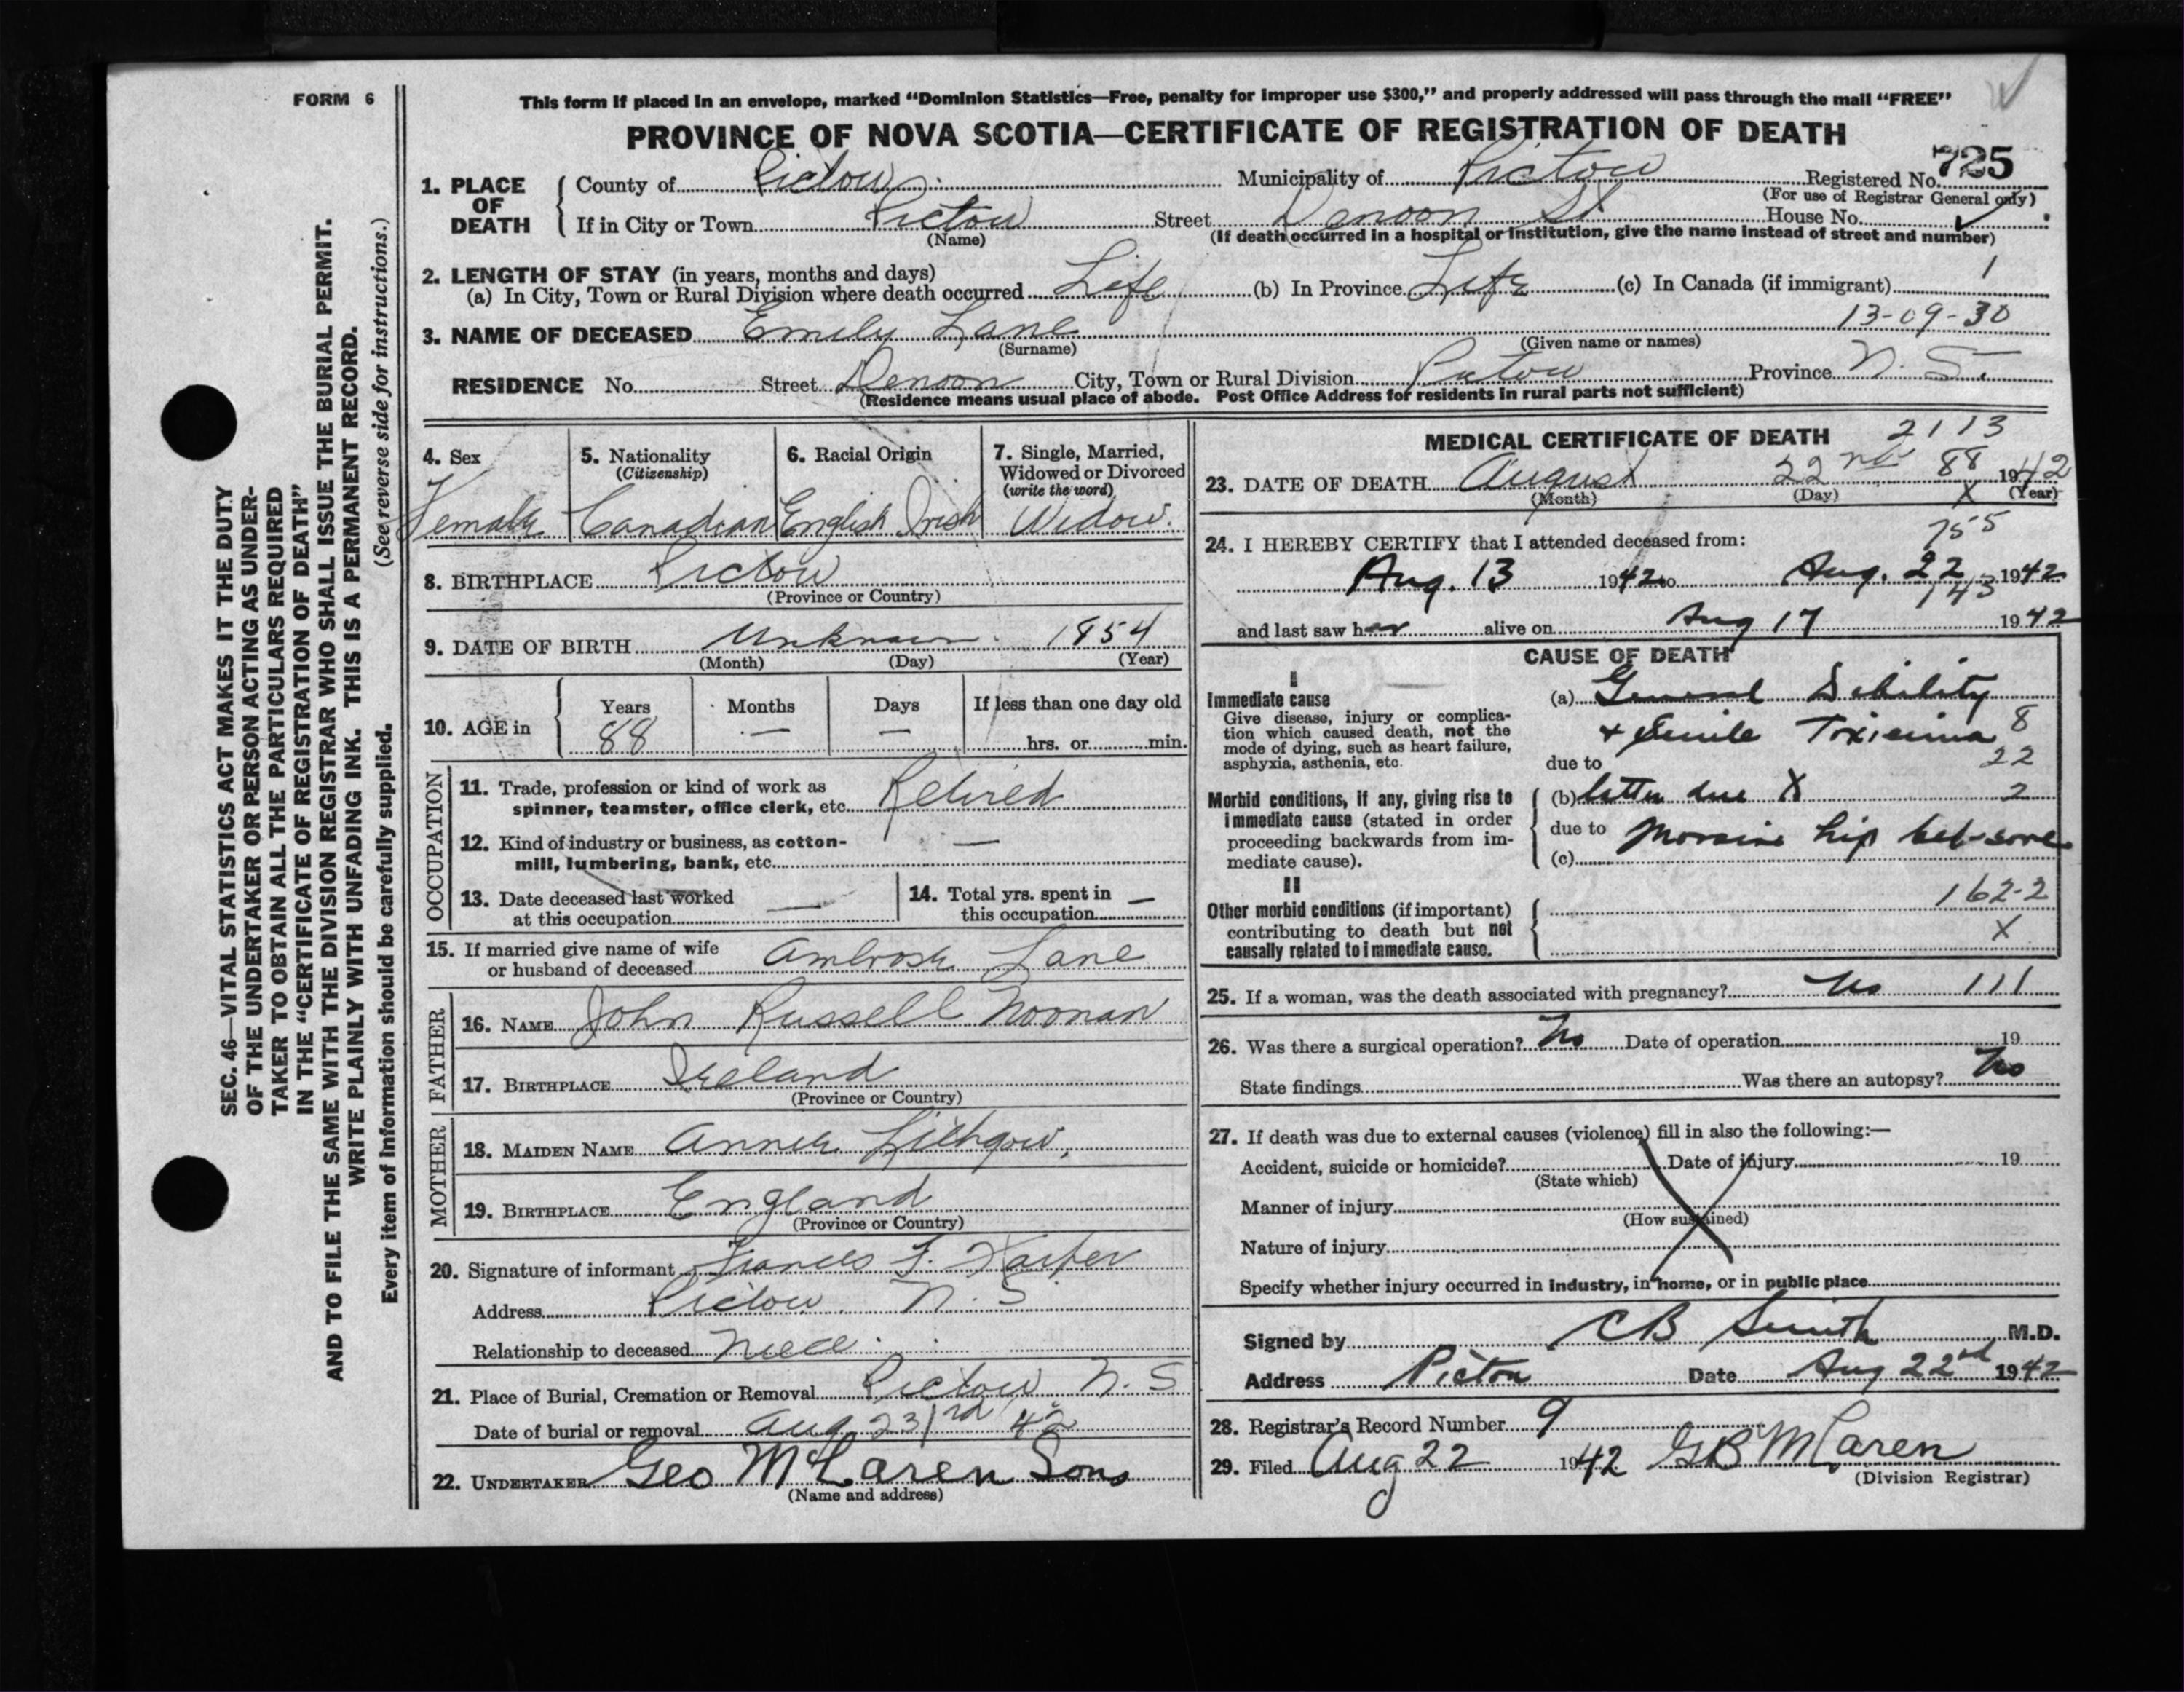 FORM 6
This form if placed in an envelope, marked “Dominion Statistics—Free, penalty for improper use $300,” and properly addressed will pass through the mail “FREE”
PROVINCE OF NOVA SCOTIA—CERTIFICATE OF REGISTRATION OF DEATH
725
1. PLACE OF DEATH { County of Pictou Municipality of Pictou Registered No.
(For use of Registrar General only)
If in City or Town Pictou Street Denoon St House No.
(Name) (If death occurred in a hospital or institution, give the name instead of street and number)
2. LENGTH OF STAY (in years, months and days)
(a) In City, Town or Rural Division where death occurred Life (b) In Province Life (c) In Canada (if immigrant) 1
13-09-30
3. NAME OF DECEASED Emily Lane
(Surname) (Given name or names)
RESIDENCE No. Street Denoon City, Town or Rural Division Pictou Province N. S.
(Residence means usual place of abode. Post Office Address for residents in rural parts not sufficient)
4. Sex 5. Nationality 6. Racial Origin 7. Single, Married,
(Citizenship) Widowed or Divorced
(write the word)
Female Canadian English Irish Widow.
8. BIRTHPLACE Pictou
(Province or Country)
9. DATE OF BIRTH Unknown 1854
(Month) (Day) (Year)
10. AGE in Years Months Days If less than one day old
88 — — hrs. or min.
OCCUPATION
11. Trade, profession or kind of work as
spinner, teamster, office clerk, etc. Retired
12. Kind of industry or business, as cotton-
mill, lumbering, bank, etc. —
13. Date deceased last worked 14. Total yrs. spent in
at this occupation — this occupation —
15. If married give name of wife
or husband of deceased Ambrose Lane
FATHER
16. NAME John Russell Noonan
17. BIRTHPLACE Ireland
(Province or Country)
MOTHER
18. MAIDEN NAME Annie Lithgow,
19. BIRTHPLACE England
(Province or Country)
20. Signature of informant Frances F. Harper
Address Pictou N. S.
Relationship to deceased Niece
21. Place of Burial, Cremation or Removal Pictou N. S
Date of burial or removal Aug 23rd 42
22. UNDERTAKER Geo McLaren Sons
(Name and address)
MEDICAL CERTIFICATE OF DEATH 2113
23. DATE OF DEATH August 22nd 88 1942
(Month) (Day) X (Year)
755
24. I HEREBY CERTIFY that I attended deceased from:
Aug. 13 1942 to Aug. 22 1942
143
and last saw her alive on Aug 17 1942
CAUSE OF DEATH
I
Immediate cause (a) General Debility
Give disease, injury or complica-
tion which caused death, not the
mode of dying, such as heart failure,
asphyxia, asthenia, etc.
& Senile Toxiemia 8
due to 22
Morbid conditions, if any, giving rise to
immediate cause (stated in order
proceeding backwards from im-
mediate cause).
(b) latter due X 2
due to hip bed-sore
(c)
II
Other morbid conditions (if important)
contributing to death but not
causally related to immediate cause.
162-2
X
25. If a woman, was the death associated with pregnancy? No 111
26. Was there a surgical operation? No Date of operation 19
State findings Was there an autopsy? No
27. If death was due to external causes (violence) fill in also the following:—
Accident, suicide or homicide? Date of injury 19
(State which)
Manner of injury
(How sustained)
Nature of injury
Specify whether injury occurred in industry, in home, or in public place
Signed by CB Smith M.D.
Address Pictou Date Aug 22nd 1942
28. Registrar's Record Number 9
29. Filed Aug 22 1942 GB McLaren
(Division Registrar)
SEC. 46—VITAL STATISTICS ACT MAKES IT THE DUTY
OF THE UNDERTAKER OR PERSON ACTING AS UNDER-
TAKER TO OBTAIN ALL THE PARTICULARS REQUIRED
IN THE “CERTIFICATE OF REGISTRATION OF DEATH”
AND TO FILE THE SAME WITH THE DIVISION REGISTRAR WHO SHALL ISSUE THE BURIAL PERMIT.
WRITE PLAINLY WITH UNFADING INK. THIS IS A PERMANENT RECORD.
Every item of Information should be carefully supplied. (See reverse side for instructions.)